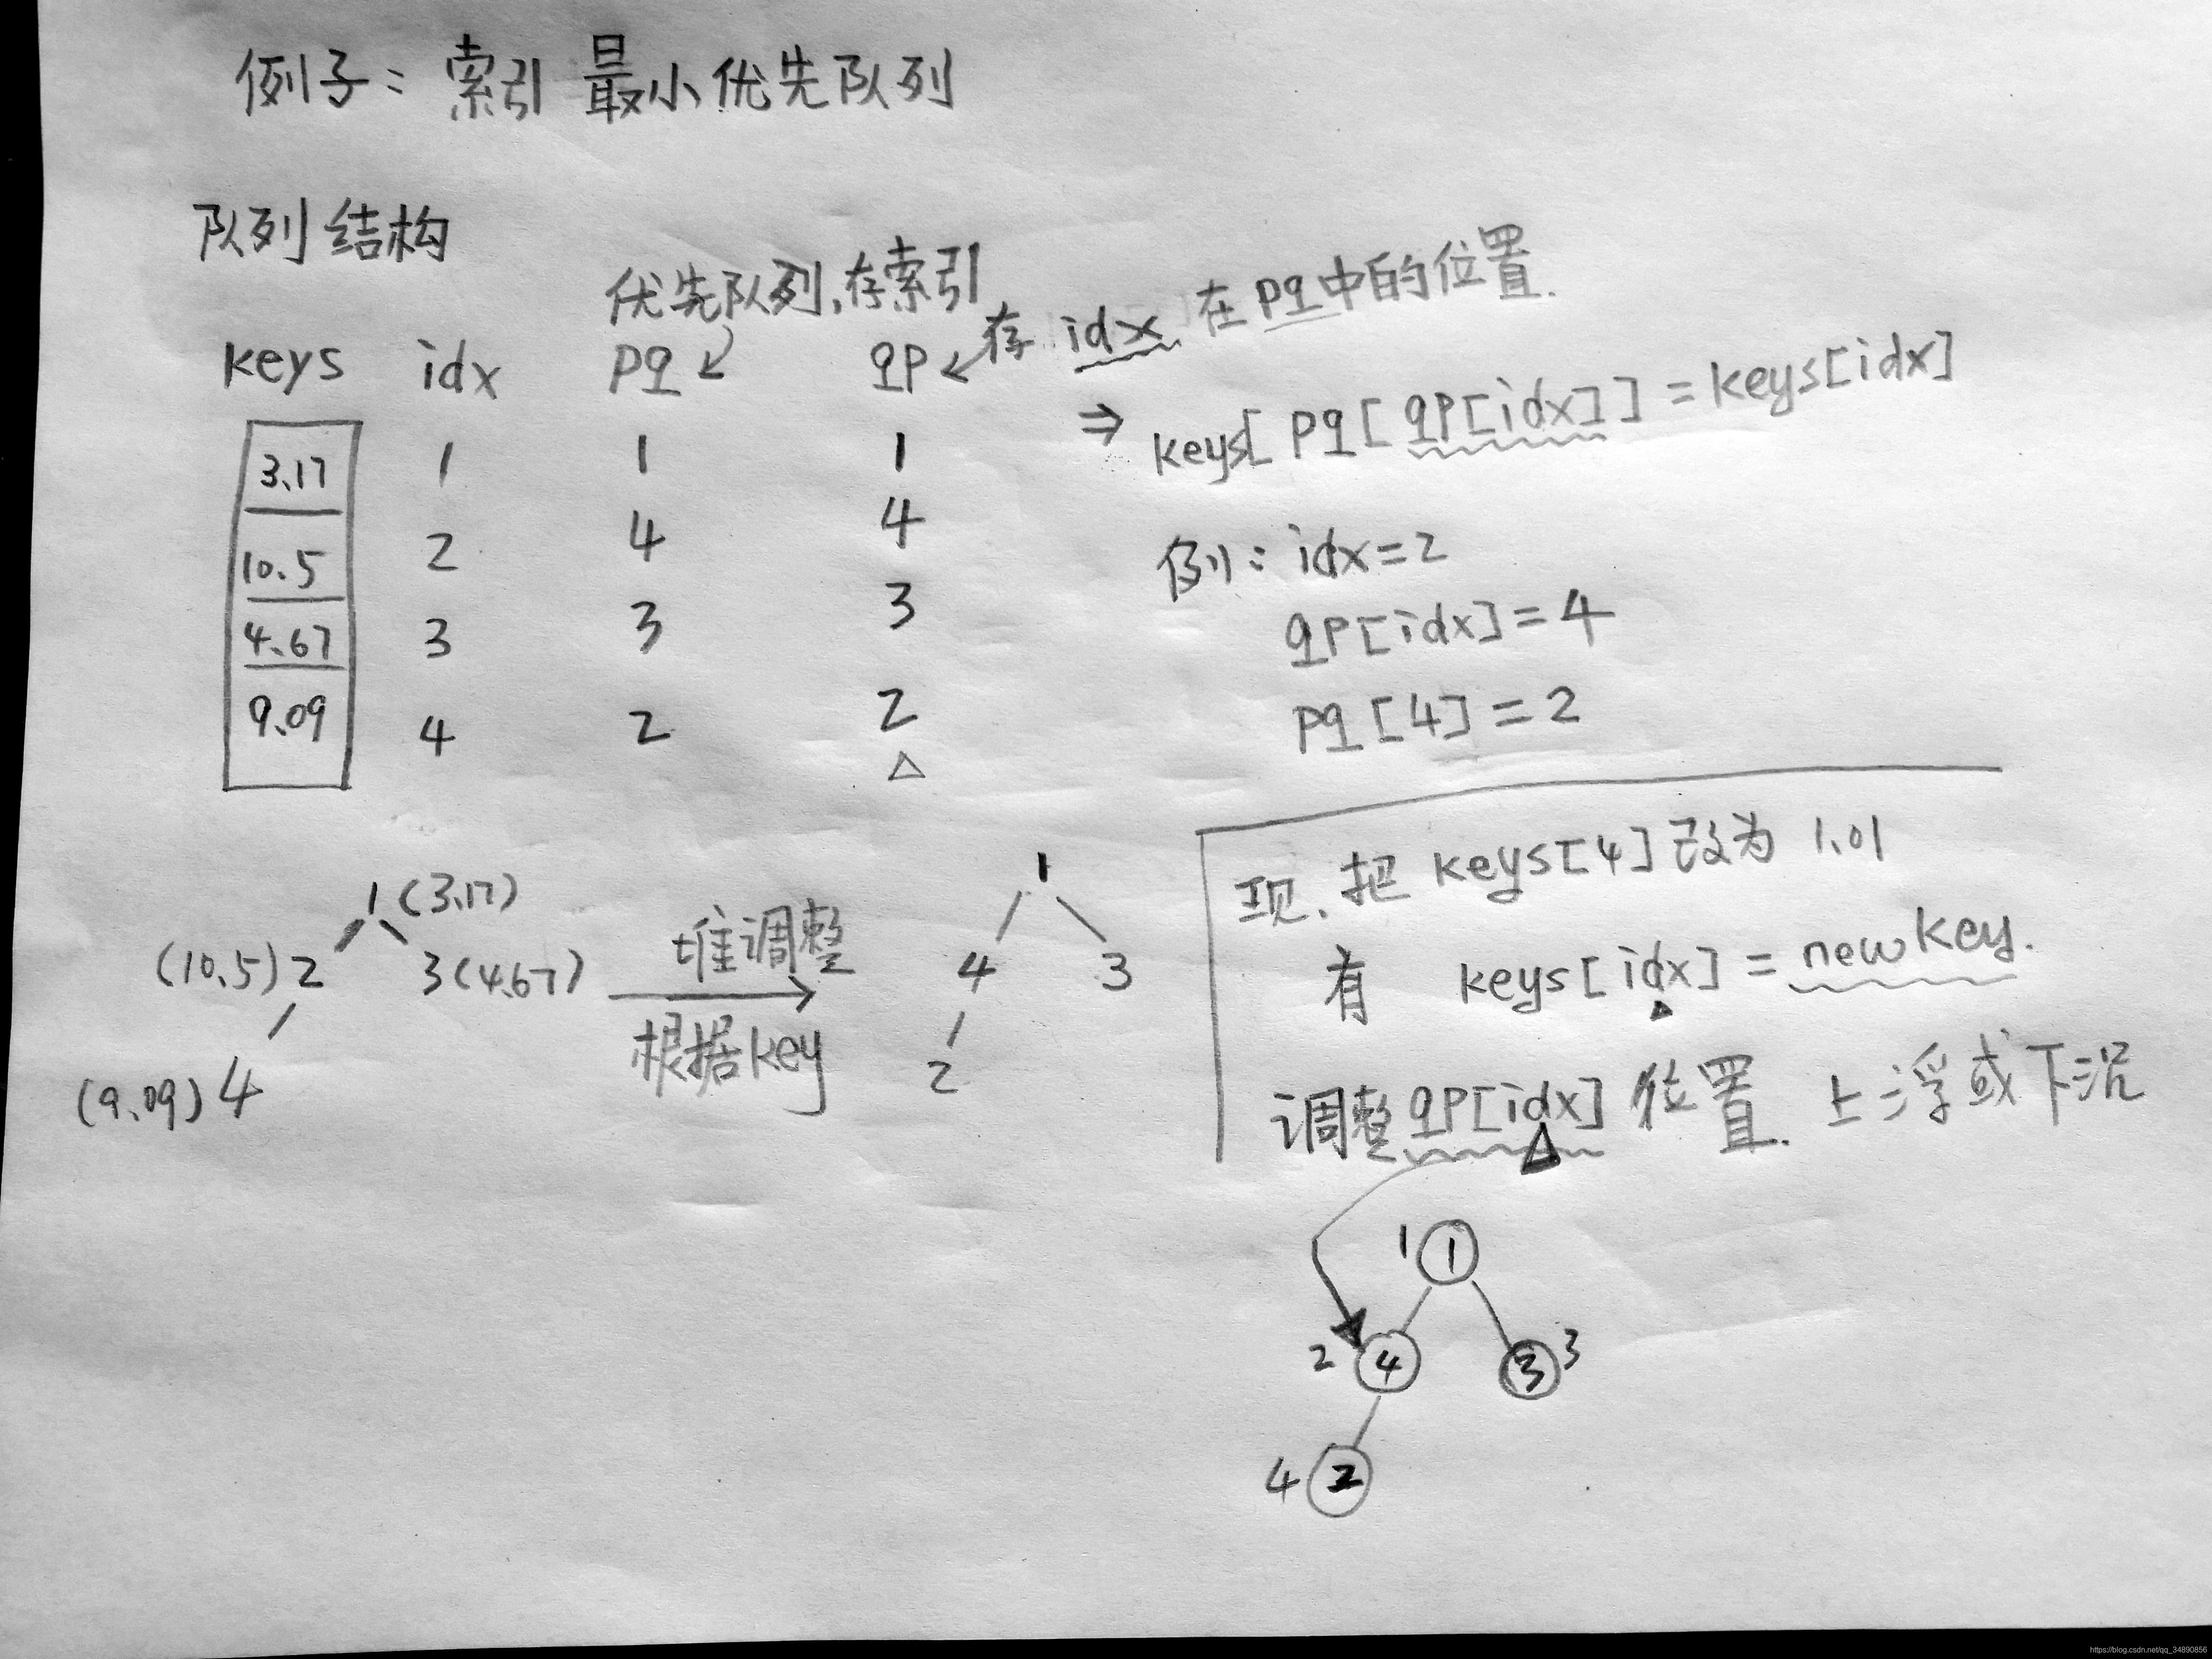 例子: 索引 最小优先队列
队列结构
优先队列,存索引
keys idx pq qp 存 idx 在 pq中的位置.
3.17 1 1 1
10.5 2 4 4
4.67 3 3 3
9.09 4 2 2
△
⇒ keys[ pq[ qp[idx]] = keys[idx]
例: idx=2
qp[idx]=4
pq[4]=2
1 (3.17)
(10.5) 2 3 (4.67)
(9.09) 4
堆调整
根据key
1
4 3
2
现, 把 keys[4] 改为 1.01
有 keys[idx] = newKey.
调整 qp[idx] 位置. 上浮或下沉
1 1
2 4 3 3
4 2
https://blog.csdn.net/qq_34890856